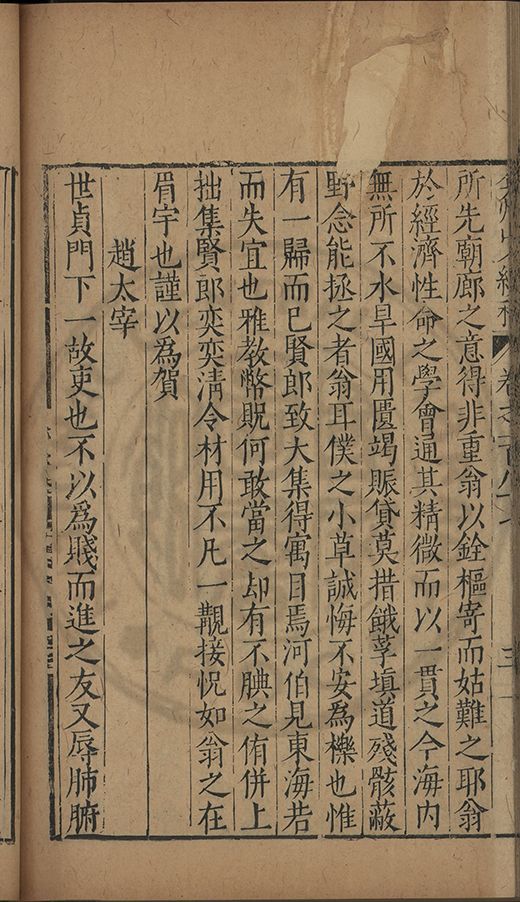 所先朝廊之意得非重翁以銓樞寄而姑難之耶翁
於經濟性命之學會通其精微而以一貫之今海內
無所不水旱國用匱竭賑貸莫措餓莩填道殘骸蔽
野念能拯之者翁耳僕之小草誠悔不安為櫟也惟
有一歸而已賢郎致大集得寓目焉河伯見東海若
而失宜也雅教幣貺何敢當之却有不腆之侑併上
拙集賢郎奕奕清令材用不凡一覯接怳如翁之在
眉宇也謹以為賀
趙太宰
世貞門下一故吏也不以為賤而進之友又辱肺腑